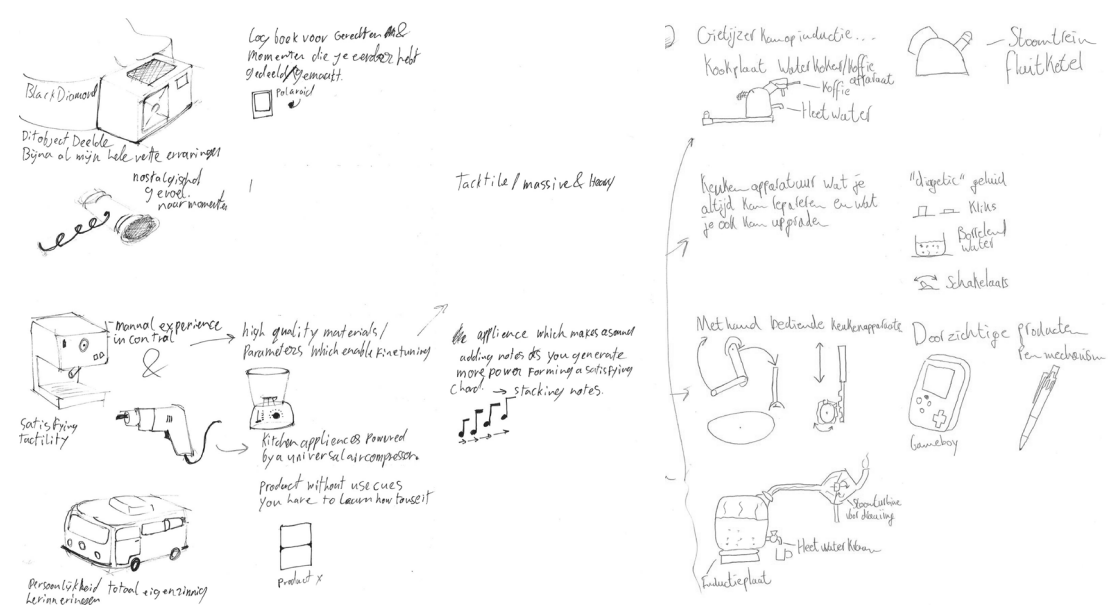 Black Diamond
Dit object Deelde
Bijna al mijn hele vette ervaringen
nostalgisch
gevoel.
naar momenten
Log boek voor Gerechten &
momenten die je eerder hebt
gedeeld/gemaakt.
Polaroid
Tacktile / massive & Heavy
- mannal experience
in control
&
satisfying
tactility
high quality materials/
Parameters which enable finetuning
Kitchen appliences Powered
by a universal aircompressor.
product without use cues
You have to learn how to use it
Product x
Persoonlijkheid totaal eigenzinnig
herinneringen
applience which makes a sound
adding notes as you generate
more power forming a satisfying
Chord. → stacking notes.
Gietijzer kan op inductie...
Kookplaat Waterkoker/koffie
apparaat
Koffie
Heet water
Stoomtrein
fluitketel
Keuken apparatuur wat je
altijd kan repareren en wat
je ook kan upgraden
"diagetic" geluid
Kliks
Borrelend
water
Schakelaars
Met hand bediende keukenapparate
Doorzichtige producten
Pen mechanism
Gameboy
Stoomturbine
voor draaiing
Heet water kraan
Inductieplaat